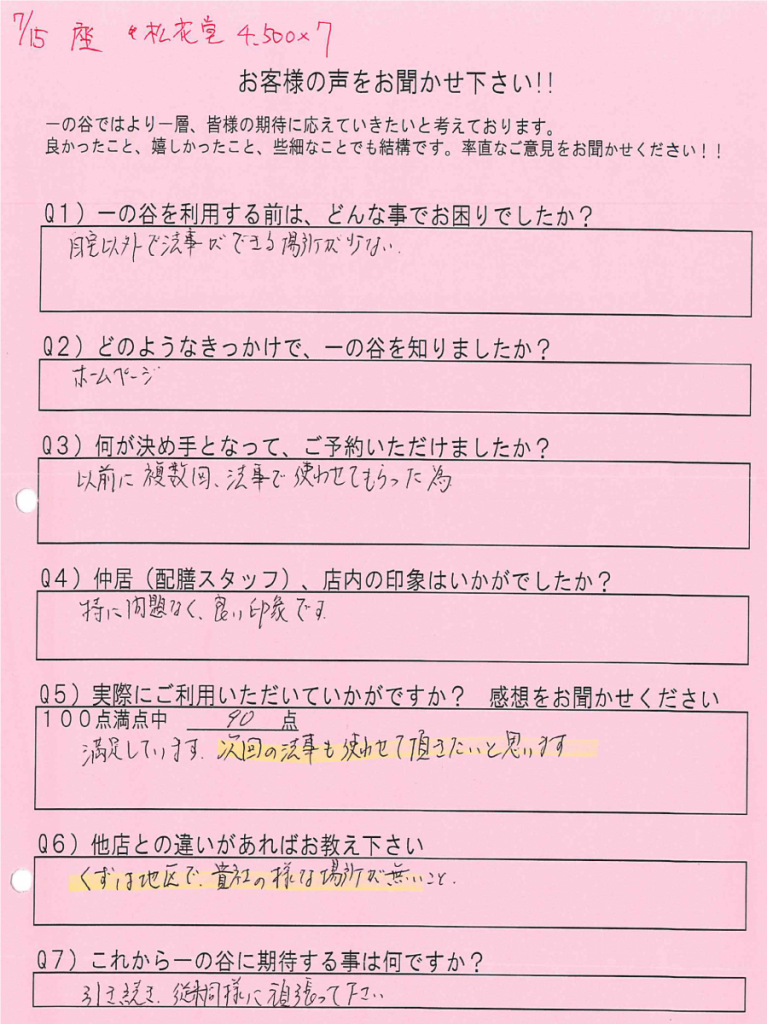 7/15 座 松花堂 4,500×7
お客様の声をお聞かせ下さい!!
一の谷ではより一層、皆様の期待に応えていきたいと考えております。
良かったこと、嬉しかったこと、些細なことでも結構です。率直なご意見をお聞かせください！！
Q1）一の谷を利用する前は、どんな事でお困りでしたか？
自宅以外で法事ができる場所が少ない.
Q2）どのようなきっかけで、一の谷を知りましたか？
ホームページ
Q3）何が決め手となって、ご予約いただけましたか？
以前に複数回、法事で使わせてもらった為
Q4）仲居（配膳スタッフ）、店内の印象はいかがでしたか？
特に問題なく、良い印象です.
Q5）実際にご利用いただいていかがですか？ 感想をお聞かせください
100点満点中 90 点
満足しています. 次回の法事も使わせて頂きたいと思います
Q6）他店との違いがあればお教え下さい
くずは地区で、貴社の様な場所が無いこと.
Q7）これから一の谷に期待する事は何ですか？
引き続き、従来同様に頑張って下さい